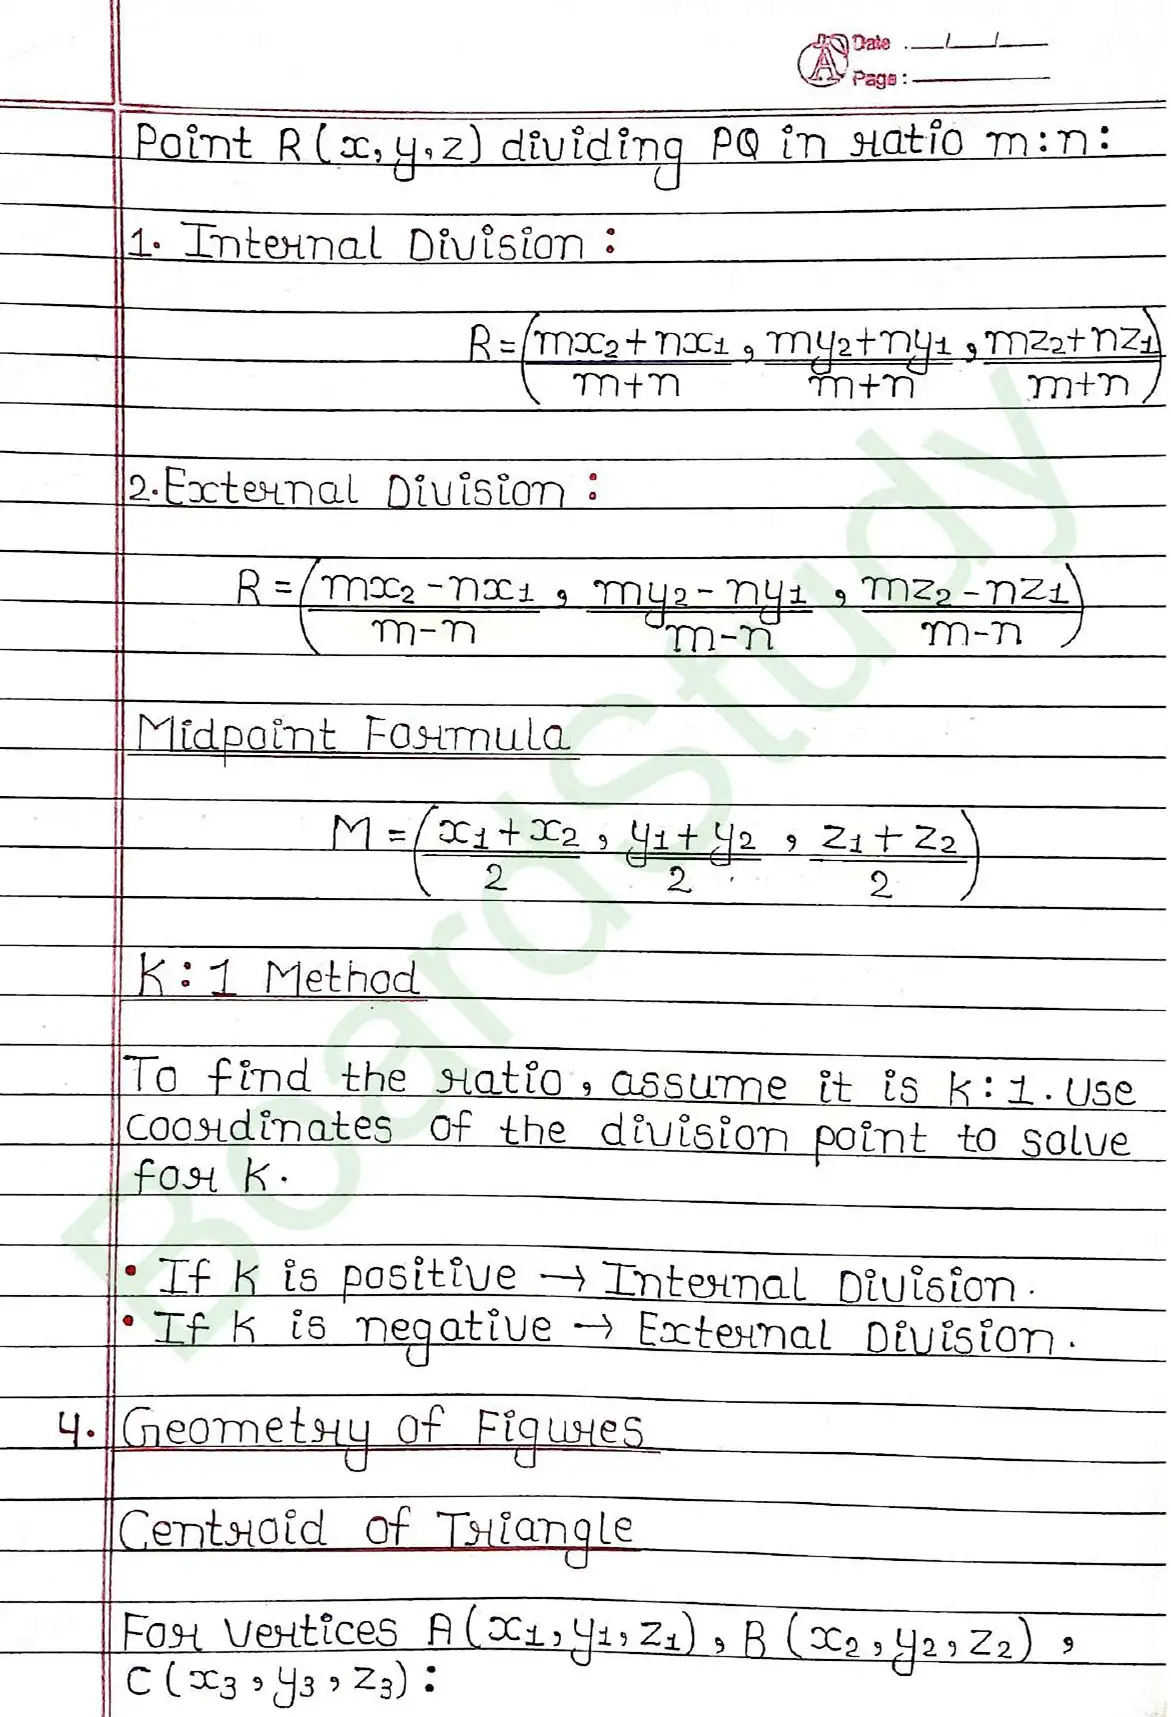 Date
Page:
Point R(x,y,z) dividing PQ in ratio m:n:
1. Internal Division:
R=(mx₂+nx₁/m+n, my₂+ny₁/m+n, mz₂+nz₁/m+n)
2. External Division:
R=(mx₂-nx₁/m-n, my₂-ny₁/m-n, mz₂-nz₁/m-n)
Midpoint Formula
M=(x₁+x₂/2, y₁+y₂/2, z₁+z₂/2)
K:1 Method
To find the ratio, assume it is k:1. Use
coordinates of the division point to solve
for k.
• If k is positive → Internal Division.
• If k is negative → External Division.
4. Geometry of Figures
Centroid of Triangle
For vertices A(x₁,y₁,z₁), B(x₂,y₂,z₂),
C(x₃,y₃,z₃):
BoardStudy